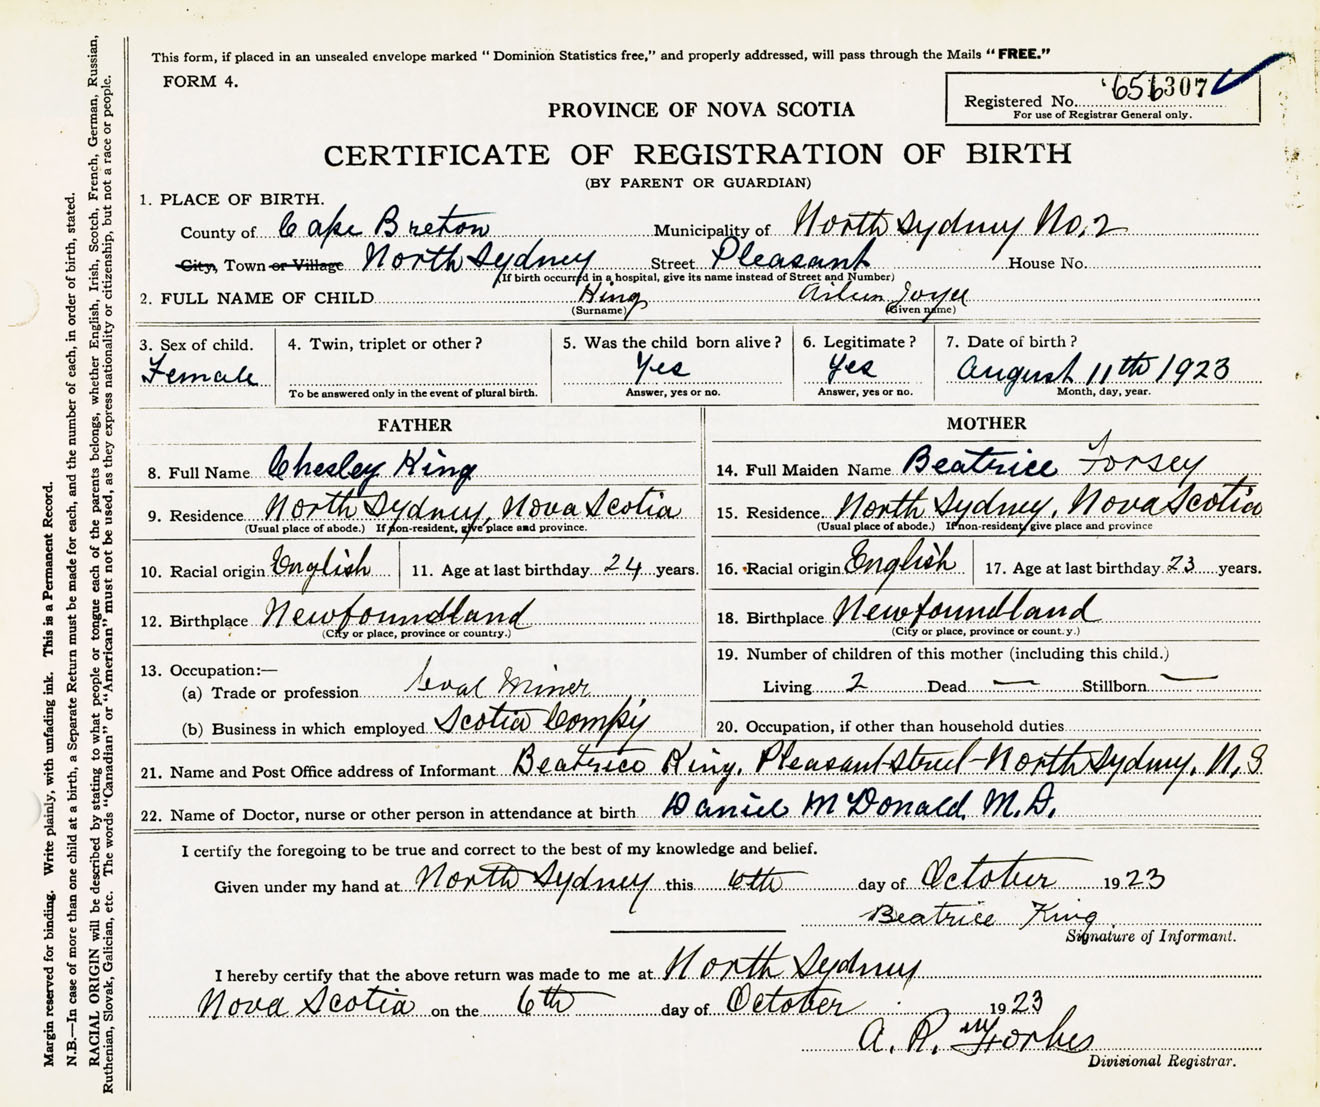 This form, if placed in an unsealed envelope marked "Dominion Statistics free," and properly addressed, will pass through the Mails "FREE."
FORM 4.
Registered No. 656307
For use of Registrar General only.
PROVINCE OF NOVA SCOTIA
CERTIFICATE OF REGISTRATION OF BIRTH
(BY PARENT OR GUARDIAN)
1. PLACE OF BIRTH.
County of Cape Breton Municipality of North Sydney No. 2
City, Town or Village North Sydney Street Pleasant House No.
(If birth occurred in a hospital, give its name instead of Street and Number)
2. FULL NAME OF CHILD King Joyce
(Surname) (Given name)
3. Sex of child. 4. Twin, triplet or other? 5. Was the child born alive? 6. Legitimate? 7. Date of birth?
Female Yes Yes August 11th 1923
To be answered only in the event of plural birth. Answer, yes or no. Answer, yes or no. Month, day, year.
FATHER
8. Full Name Chesley King
9. Residence North Sydney, Nova Scotia
(Usual place of abode.) If non-resident, give place and province.
10. Racial origin English 11. Age at last birthday 24 years.
12. Birthplace Newfoundland
(City or place, province or country.)
13. Occupation:—
(a) Trade or profession Coal Miner
(b) Business in which employed Scotia Compy
MOTHER
14. Full Maiden Name Beatrice Forsey
15. Residence North Sydney, Nova Scotia
(Usual place of abode.) If non-resident, give place and province
16. Racial origin English 17. Age at last birthday 23 years.
18. Birthplace Newfoundland
(City or place, province or count.y.)
19. Number of children of this mother (including this child.)
Living 2 Dead — Stillborn —
20. Occupation, if other than household duties
21. Name and Post Office address of Informant Beatrice King, Pleasant street - North Sydney, N.S
22. Name of Doctor, nurse or other person in attendance at birth Daniel McDonald, M.D.
I certify the foregoing to be true and correct to the best of my knowledge and belief.
Given under my hand at North Sydney this 6th day of October 1923
Beatrice King
Signature of Informant.
I hereby certify that the above return was made to me at North Sydney
Nova Scotia on the 6th day of October 1923
A. R. Forbes
Divisional Registrar.
Margin reserved for binding. Write plainly, with unfading ink. This is a Permanent Record.
N.B.—In case of more than one child at a birth, a Separate Return must be made for each, and the number of each, in order of birth, stated.
RACIAL ORIGIN will be described by stating to what people or tongue each of the parents belongs, whether English, Irish, Scotch, French, German, Russian,
Ruthenian, Slovak, Galician, etc. The words "Canadian" or "American" must not be used, as they express nationality or citizenship, but not a race or people.